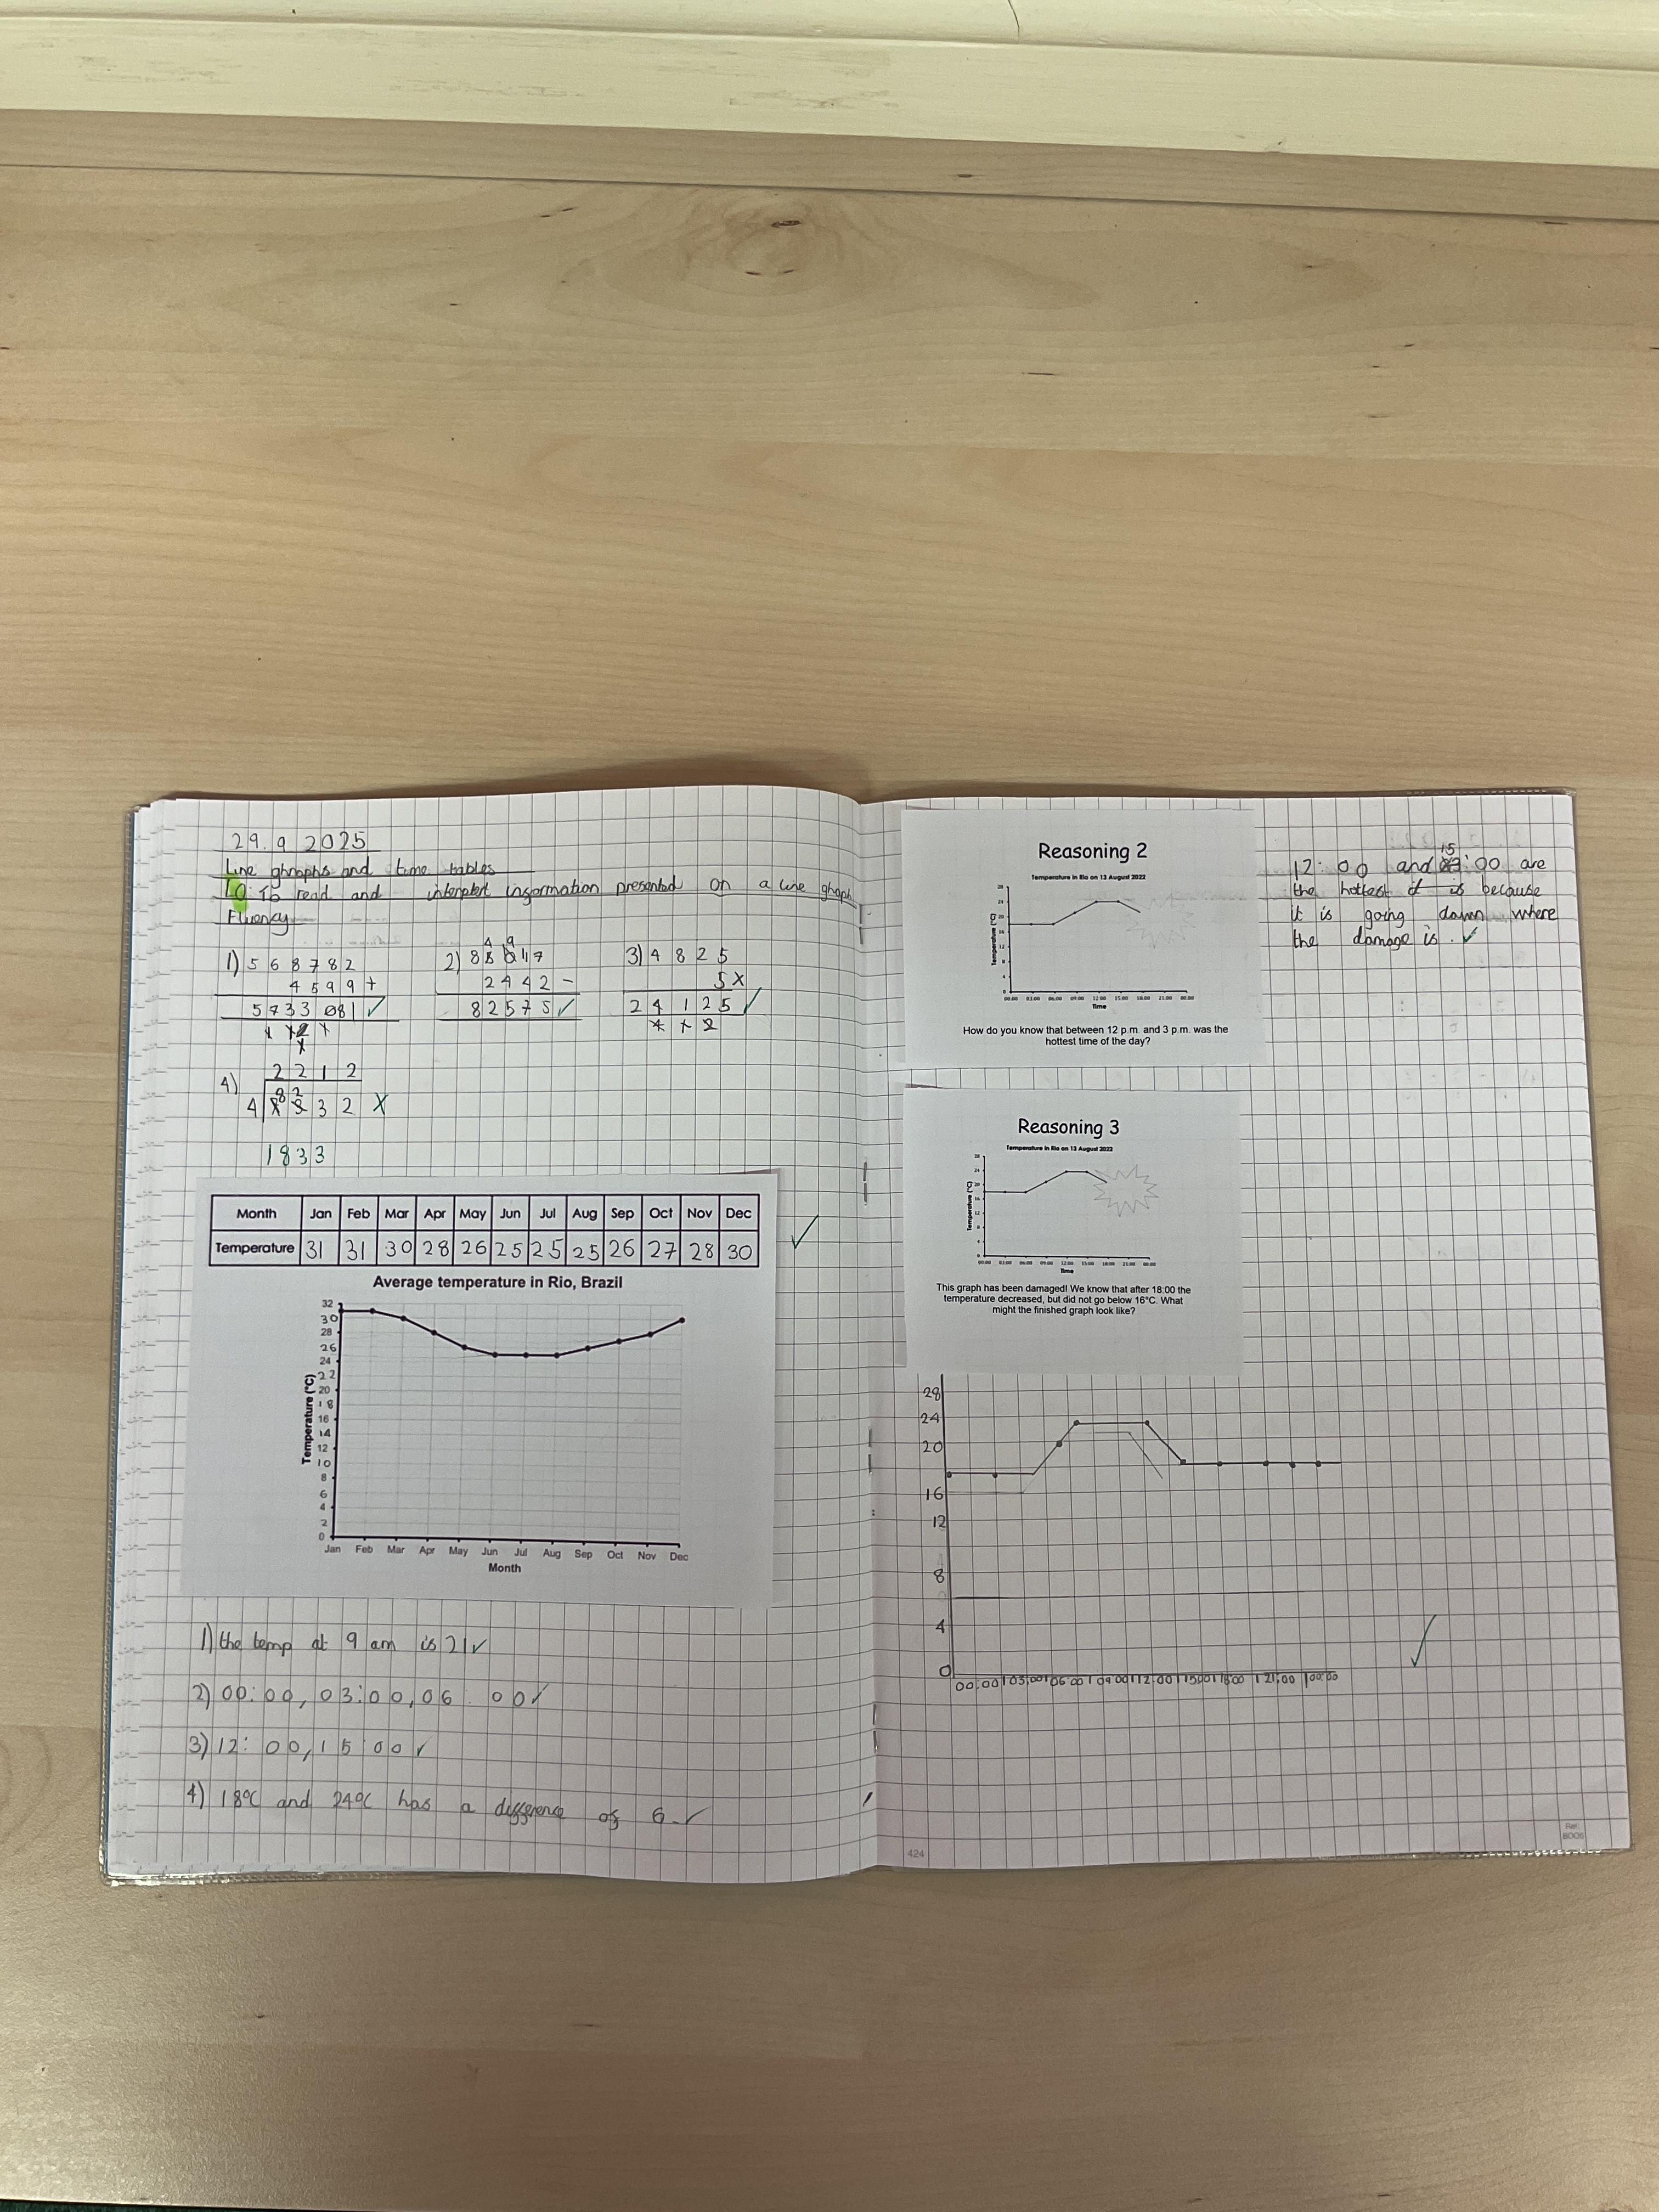 29.9.2025
Line ghraphs and time tables
LO To read and interpret information presented on a line ghaph
Fluency
1) 568782
4599+
573381
2) 85017
2442-
82575
3) 4825
5x
24125
4) 2212
4 32
1833
Month Jan Feb Mar Apr May Jun Jul Aug Sep Oct Nov Dec
Temperature 31 31 30 28 26 25 25 25 26 27 28 30
Average temperature in Rio, Brazil
32
30
28
26
24
22
20
18
16
14
12
10
8
6
4
2
0
Temperature (°C)
Jan Feb Mar Apr May Jun Jul Aug Sep Oct Nov Dec
Month
1) the temp at 9 am is 21
2) 00:00, 03:00, 06:00
3) 12:00, 15:00
4) 18°C and 24°C has a difference of 6.
Reasoning 2
Temperature in Rio on 13 August 2022
28
24
20
16
12
8
4
0
Temperature (°C)
00:00 03:00 06:00 09:00 12:00 15:00 18:00 21:00 00:00
Time
How do you know that between 12 p.m. and 3 p.m. was the
hottest time of the day?
12:00 and 15:00 are
the hottest it is because
it is going down where
the damage is.
Reasoning 3
Temperature in Rio on 13 August 2022
28
24
20
16
12
8
4
0
Temperature (°C)
00:00 03:00 06:00 09:00 12:00 15:00 18:00 21:00 00:00
Time
This graph has been damaged! We know that after 18:00 the
temperature decreased, but did not go below 16°C. What
might the finished graph look like?
28
24
20
16
12
8
4
0
00:00 03:00 06:00 09:00 12:00 15:00 18:00 21:00 00:00
424
Ref:
8006